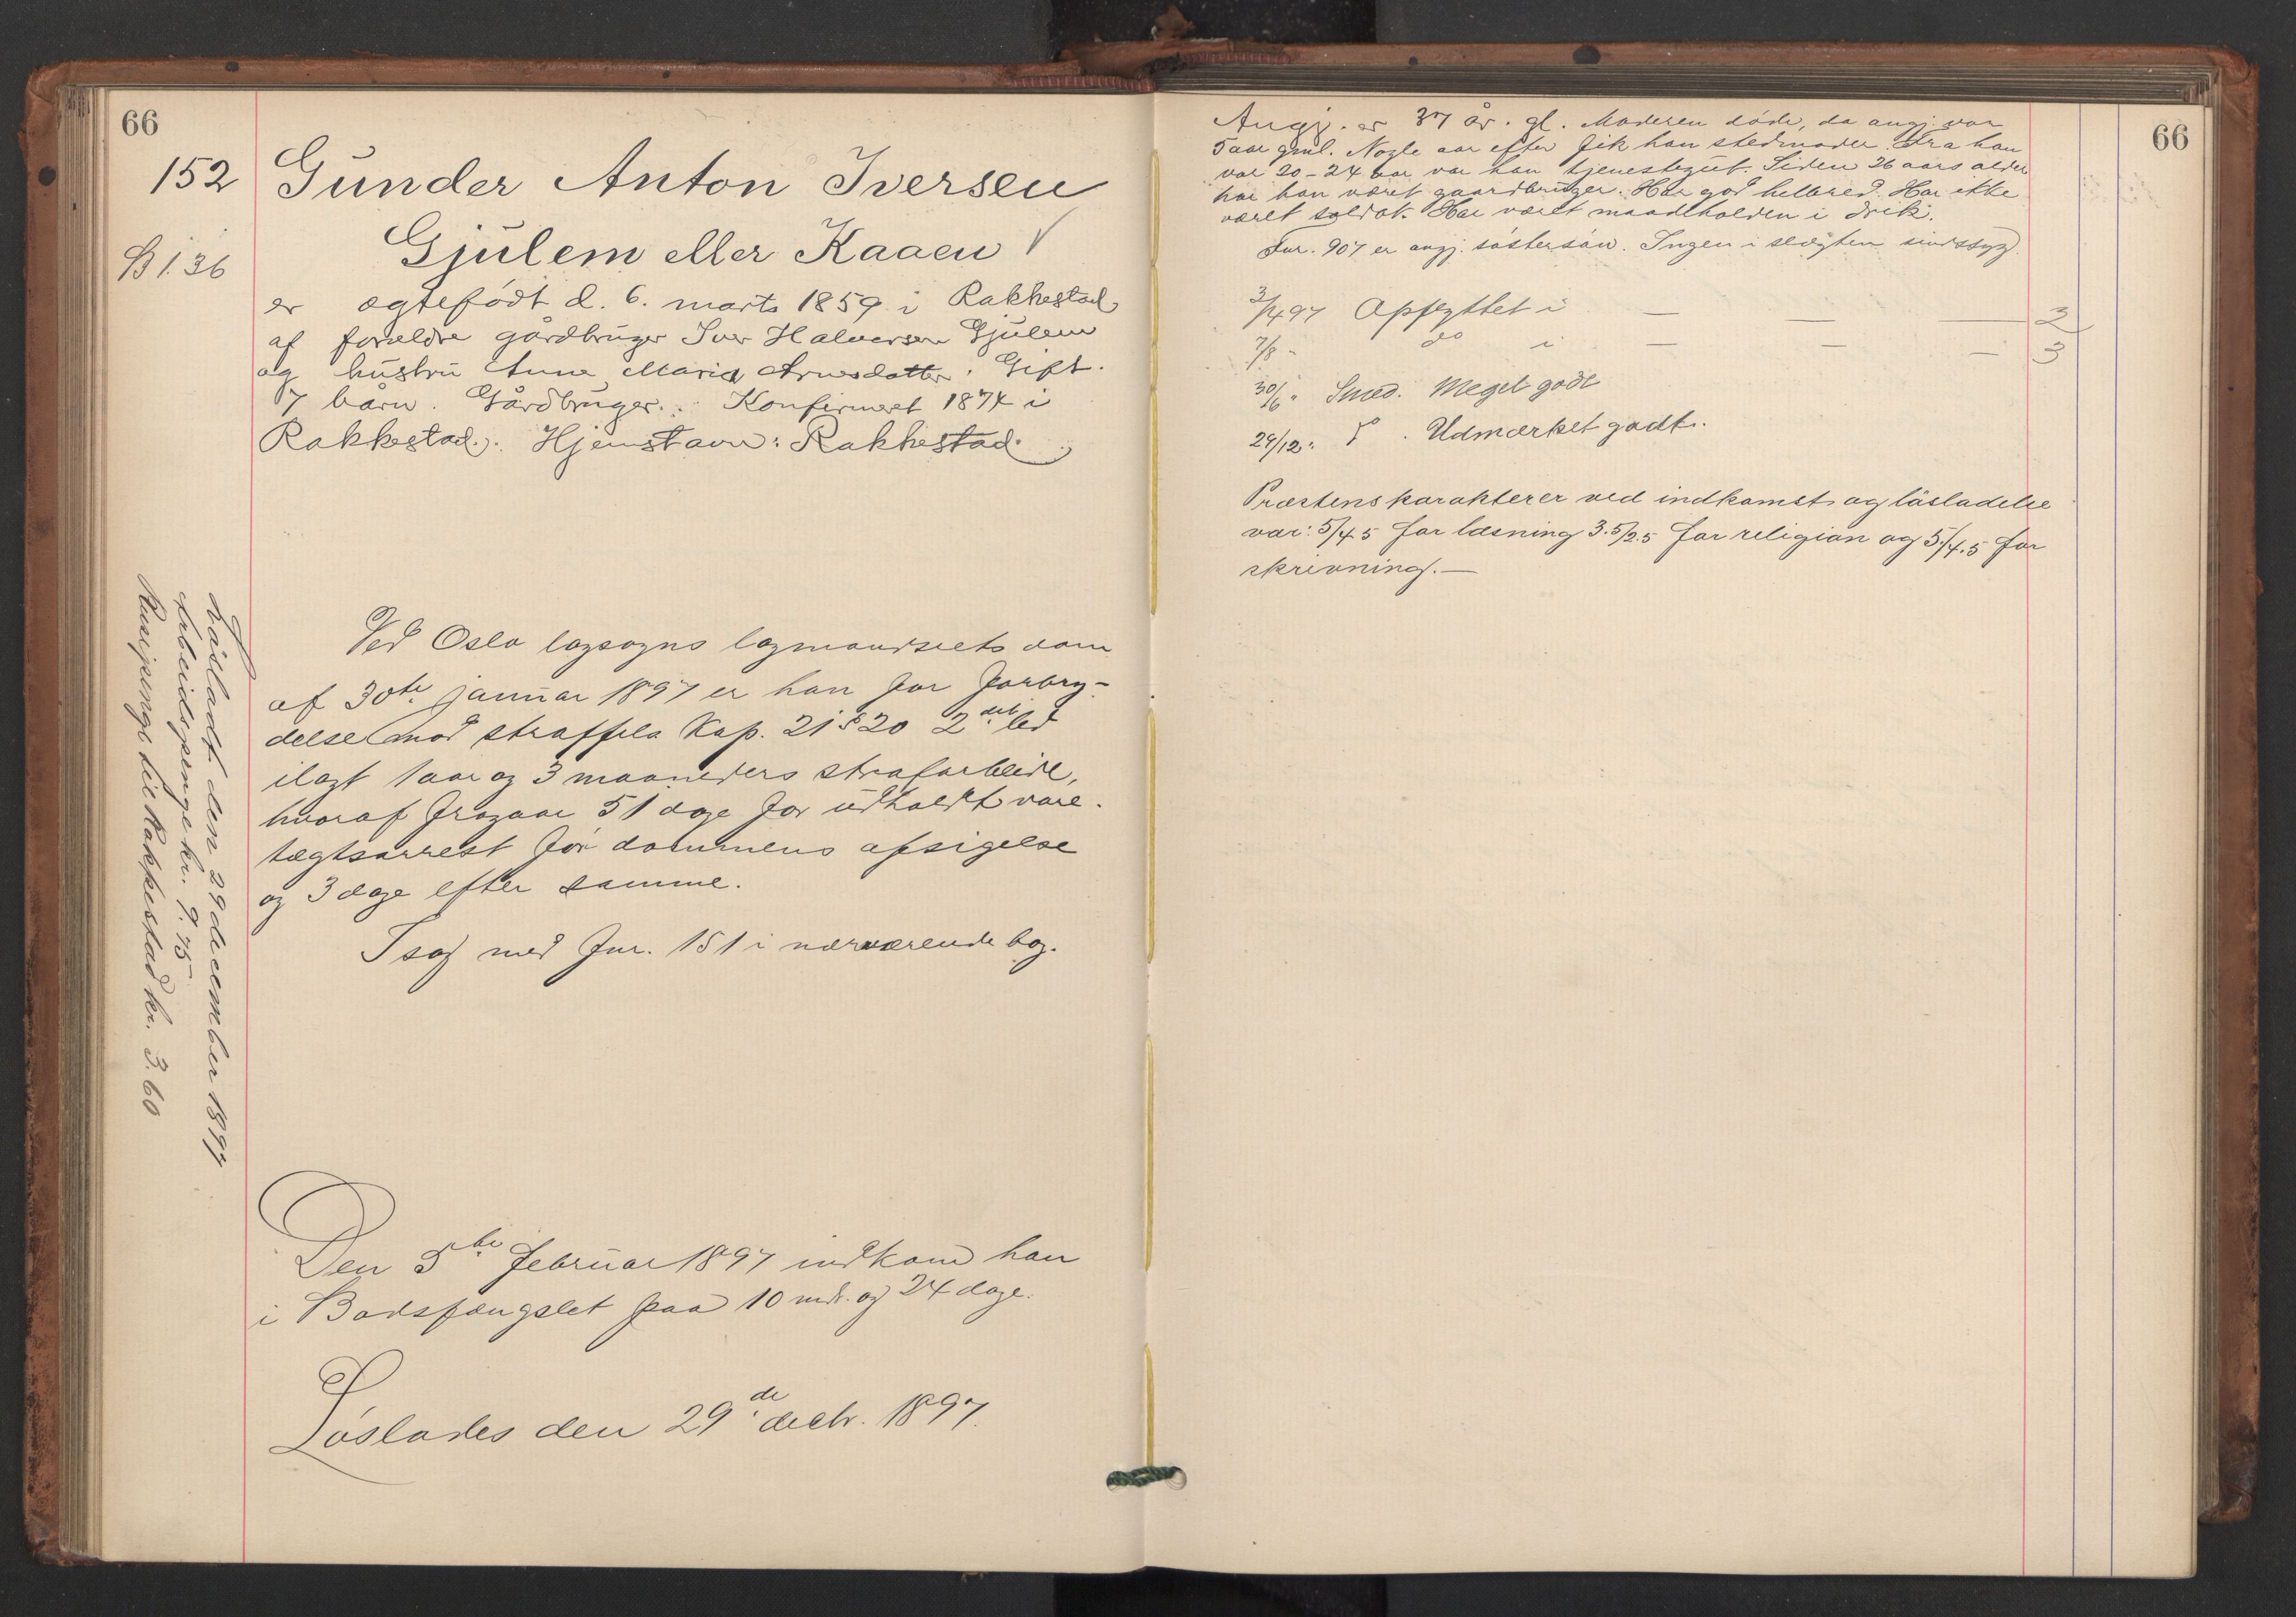 66
152 Gunder Anton Iversen
Gjulem eller Kaaen
B 1.36
er ægtefödt d. 6. marts 1859 i Rakkestad
af forældre gårdbruger Iver Halvorsen Gjulem
og hustru Anne Maria Arnesdatter. Gift.
7 börn. Gårdbruger. Konfirmeret 1874 i
Rakkestad. Hjemstavn: Rakkestad.
Ved Oslo lagsogns lagmandsrets dom
af 30te januar 1897 er han for forbry-
delse mod straffelo Kap. 21 § 20 2det led
ilagt 1 aar og 3 maaneders strafarbeide,
hvoraf fragaar 51 dage for udholdt vare-
tægtsarrest för dommens afsigelse
og 3 dage efter samme.
I sag med fnr. 151 i nærværende bog.
Den 5te februar 1897 indkom han
i Bodsfængslet paa 10 mdr. og 24 dage.
Löslades den 29de decbr. 1897.
Lösladt den 29 december 1897
Arbeidspenge kr. 9.75
Reisepenge til Rakkestad kr. 3.60
66
Angj. er 37 år. gl. Moderen döde, da angj var
5 aar gml. Nogle aar efter fik han stedmoder. Fra han
var 20-24 aar var han tjenestegut. Siden 26 aars alder
har han været gaardbruger. Har god helbred. Har ikke
været soldat. Har været maadeholden i drik.
Fnr. 907 er angj. söstersön. Ingen i slægten sindssyg.
3/4 97 Opflyttet i — — — 2
7/8 " do i — — — 3
30/6 " Smed. Meget godt
29/12 " . Udmærket godt.
Præstens karakterer ved indkomst og lösladelse
var: 5/4.5 for læsning 3.5/2.5 for religion og 5/4.5 for
skrivning.—